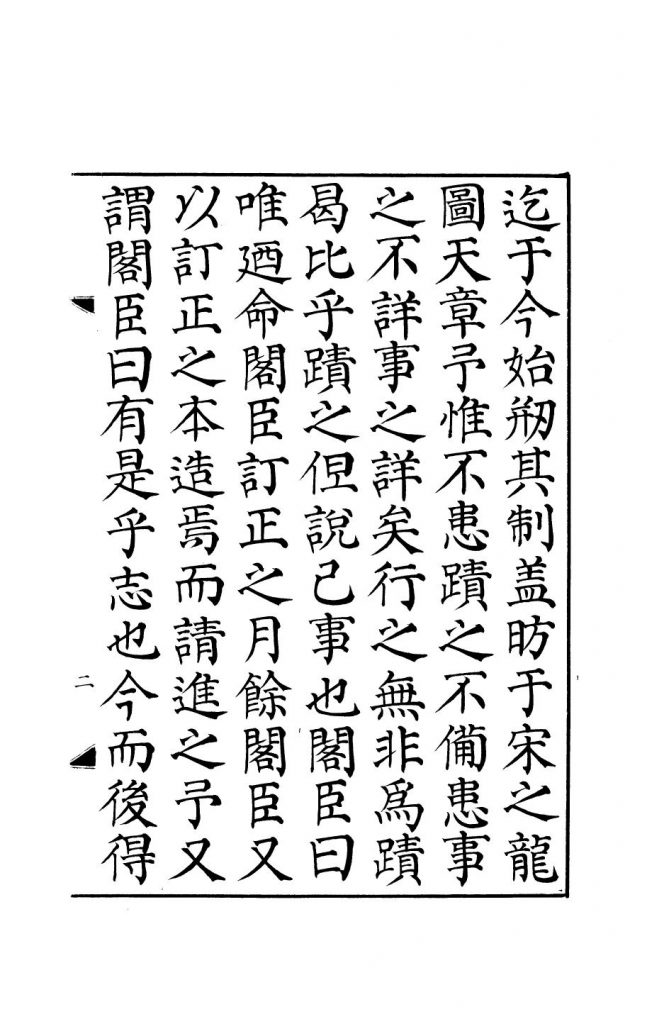 迄于今始刱其制盖昉于宋之龍
圖天章予惟不患蹟之不備患事
之不詳事之詳矣行之無非爲蹟
曷比乎蹟之但說已事也閣臣曰
唯廼命閣臣訂正之月餘閣臣又
以訂正之本造焉而請進之予又
謂閣臣曰有是乎志也今而後得
二